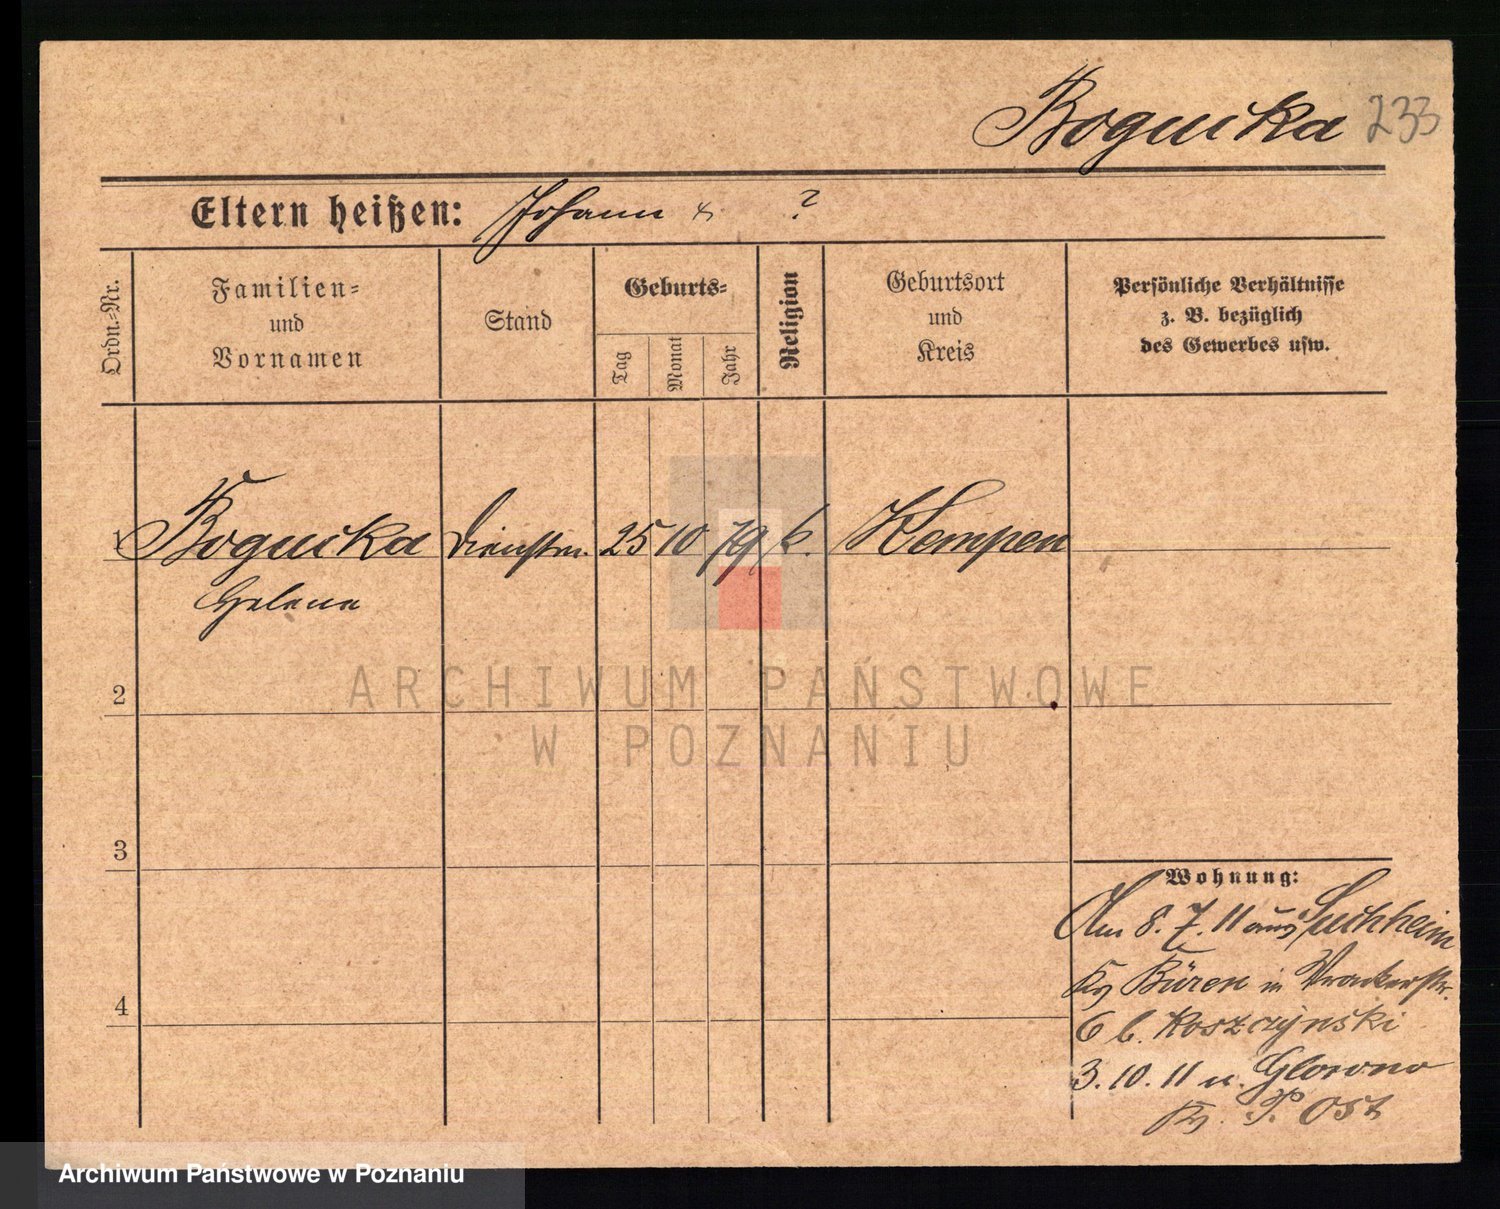 Bogucka 233
Eltern heißen: Johann & ?
Ordn.-Nr.
Familien-
und
Vornamen
Stand
Geburts-
Tag
Monat
Jahr
Religion
Geburtsort
und
Kreis
Persönliche Verhältnisse
z. B. bezüglich
des Gewerbes usw.
1 Bogucka Dienstm. 25 10 79 k. Kempen
Helene
2
3
4
Wohnung:
Am 8.7.11 aus Suchheim
Kr Büren in
6 b. Koszczynski
3.10.11 n. Glowno
Kr. P. Ost
ARCHIWUM PAŃSTWOWE
W POZNANIU
Archiwum Państwowe w Poznaniu